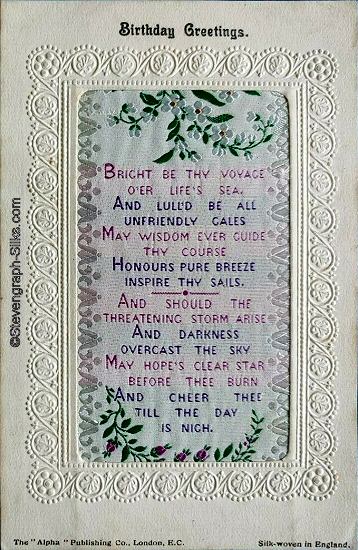 Birthday Greetings.
BRIGHT BE THY VOYAGE
O'ER LIFE'S SEA,
AND LULL'D BE ALL
UNFRIENDLY GALES
MAY WISDOM EVER GUIDE
THY COURSE
HONOURS PURE BREEZE
INSPIRE THY SAILS.
AND SHOULD THE
THREATENING STORM ARISE
AND DARKNESS
OVERCAST THE SKY
MAY HOPE'S CLEAR STAR
BEFORE THEE BURN
AND CHEER THEE
TILL THE DAY
IS NIGH.
The "Alpha" Publishing Co., London, E.C.
Silk-woven in England.
©Stevengraph-Silks.com